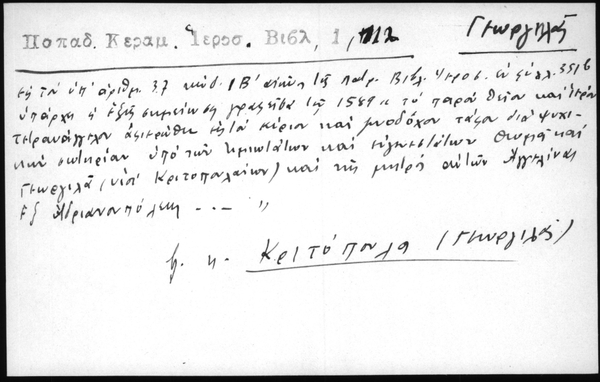 Παπαδ. Κεραμ. Ἱεροσ. Βιβλ, 1, 112
Γεωργιλᾶς
εἰς τὸ ὑπ' ἀριθμ. 37 κώδ. ΙΒ' αἰῶνος τῆς πατρ. Βιβλ. Ἱεροσ. ἐν φύλλ. 351β
ὑπάρχει ἡ ἑξῆς σημείωσις γραφεῖσα τῷ 1589 " τὸ παρὸν θεῖον καὶ ἱερὸν
τετραυάγγελον ἀφιερώθη εἰς τὸν κύριον καὶ ζωοδόχον τάφον διὰ ψυχι-
κὴν σωτηρίαν ὑπὸ τῶν τιμιωτάτων καὶ εὐγενεστάτων Θωμᾶ καὶ
Γεωργιλᾶ (υἱοὶ Κριτοπουλαίων) καὶ τῆς μητρὸς αὐτῶν Ἀγγελίνας
ἐξ Ἀδριανουπόλεως ... "
β. κ. Κριτόπουλο (Γεωργιλᾶς)